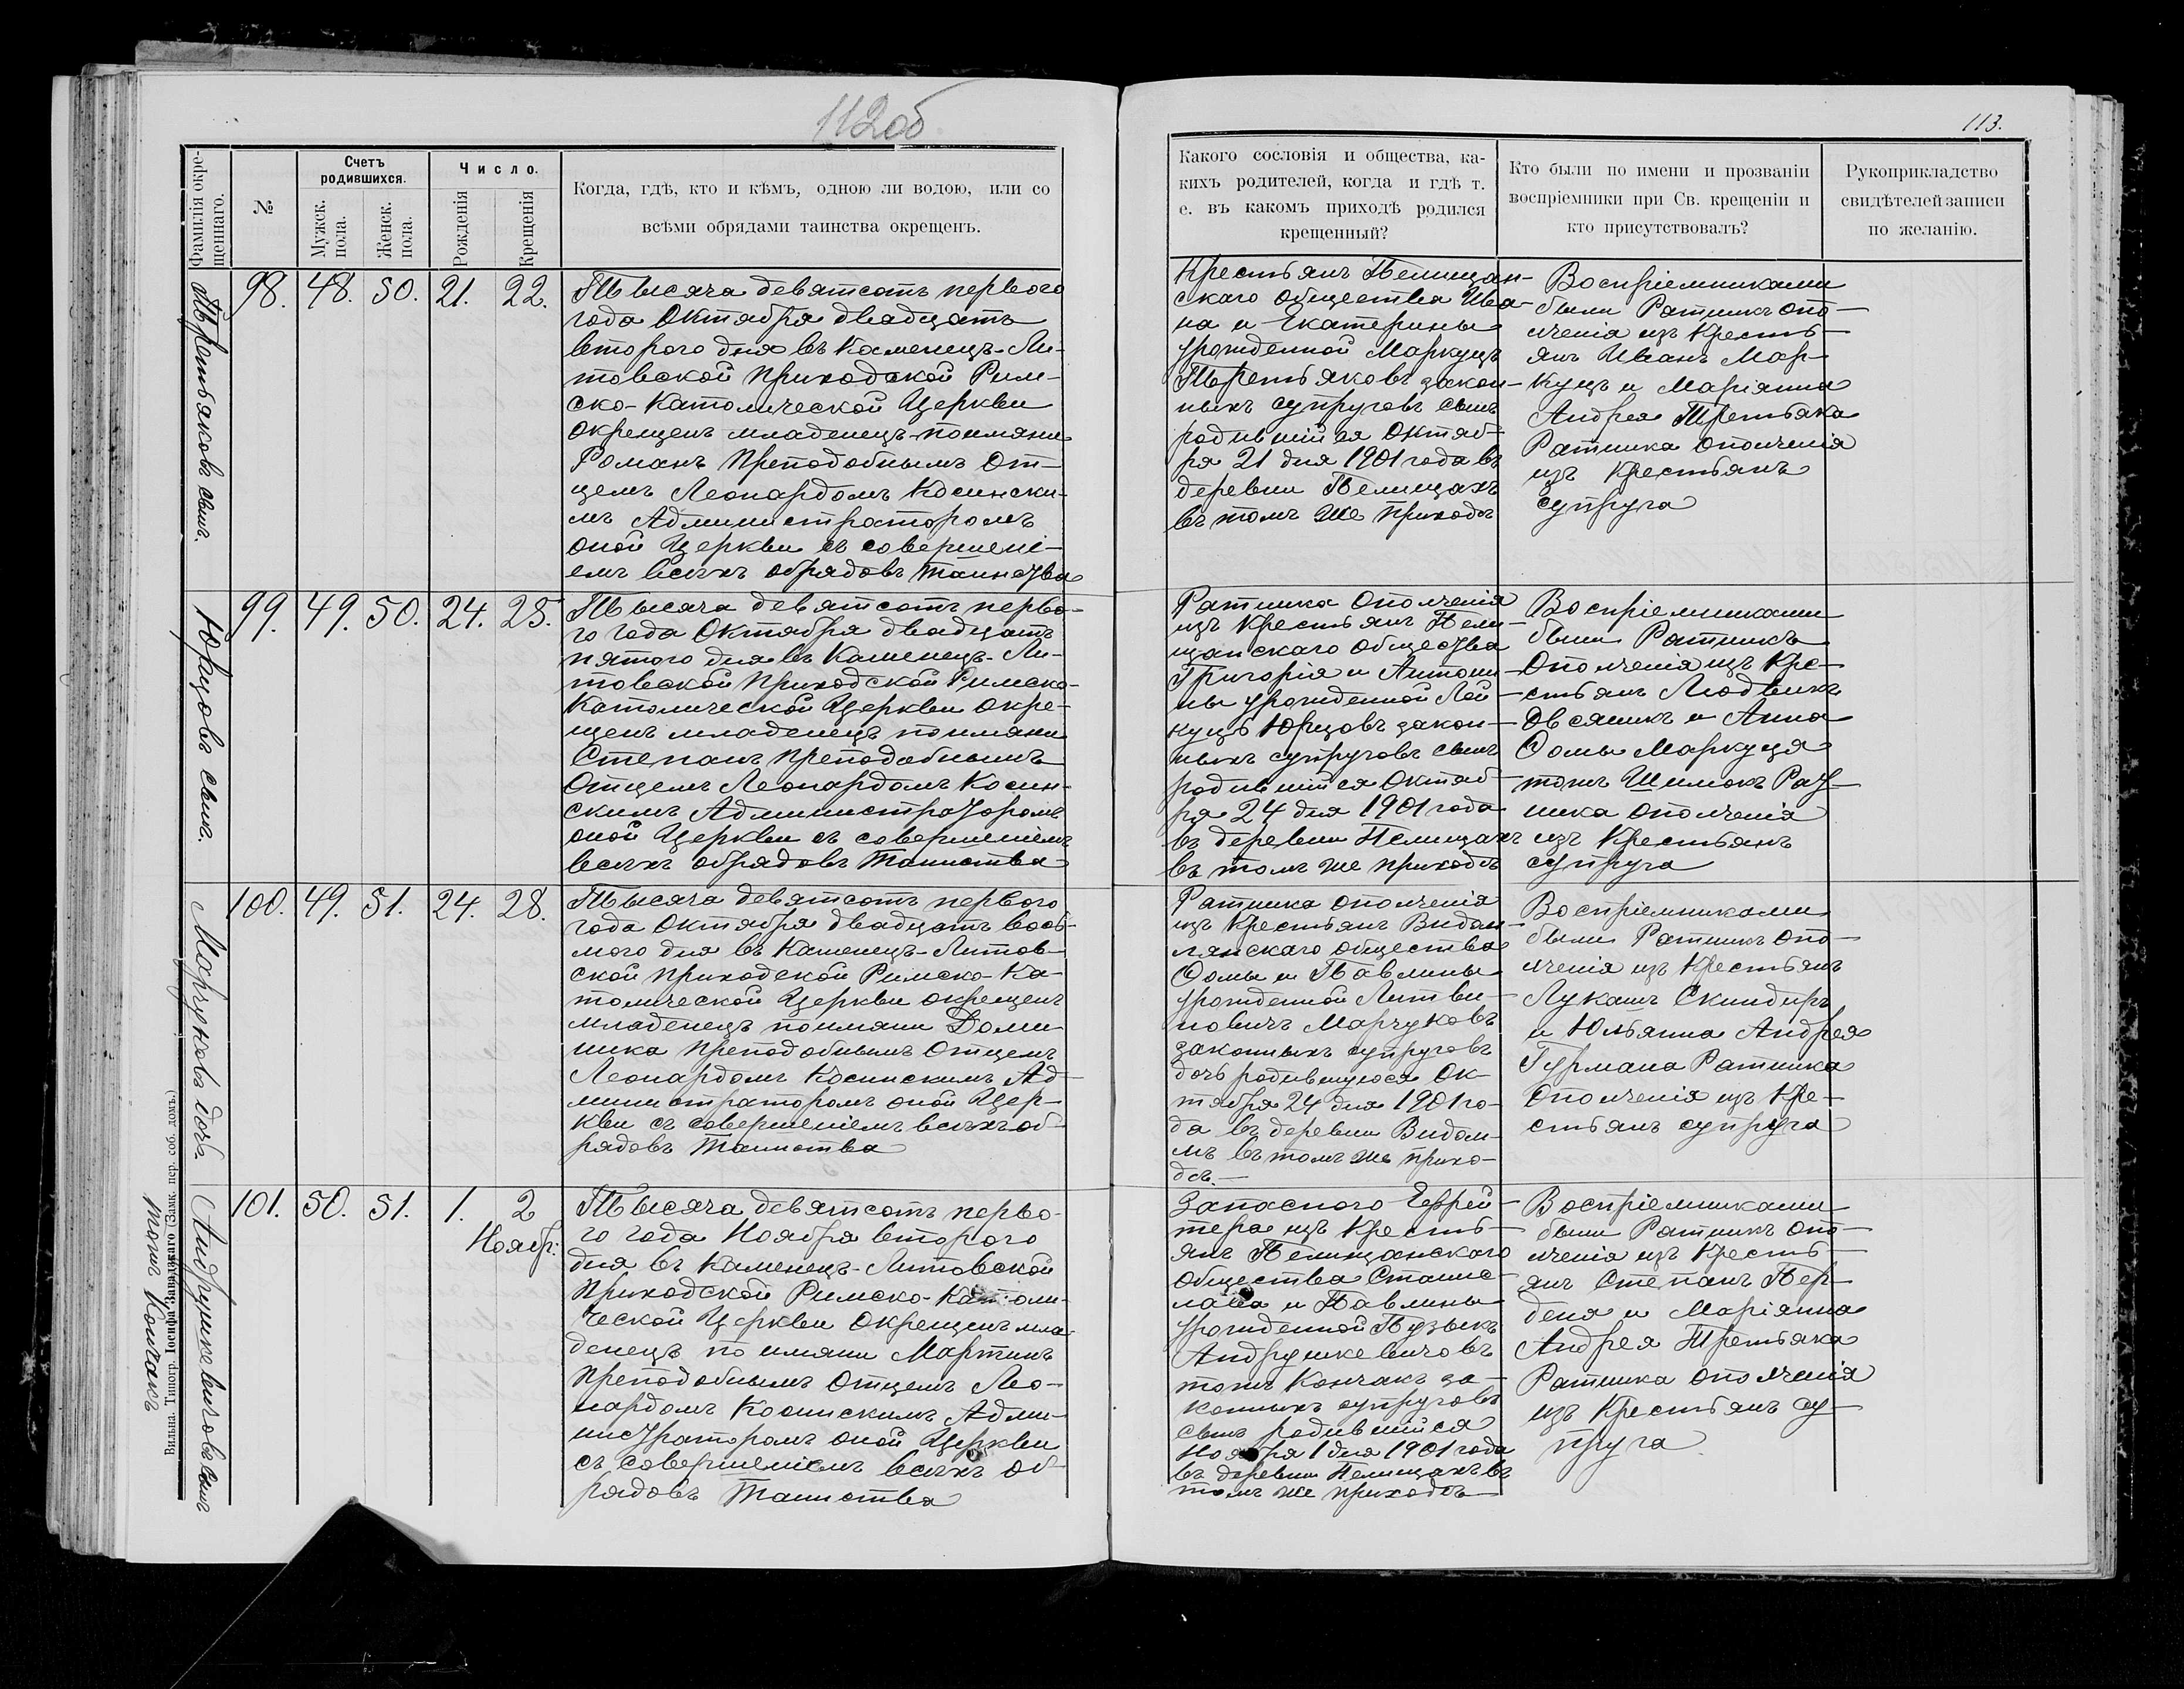 112об
113.
Фамилія окре-
щеннаго.
№
Счетъ
родившихся.
Мужск.
пола.
Женск.
пола.
Число.
Рожденія
Крещенія
Когда, гдѣ, кто и кѣмъ, одною ли водою, или со
всѣми обрядами таинства окрещенъ.
Какого сословія и общества, ка-
кихъ родителей, когда и гдѣ т.
е. въ какомъ приходѣ родился
крещенный?
Кто были по имени и прозванію
воспріемники при Св. крещеніи и
кто присутствовалъ?
Рукоприкладство
свидѣтелей записи
по желанію.
Третьяковъ сынъ.
98. 48. 50. 21. 22.
Тысяча девятсотъ первого
года Октября двадцать
второго дня въ Каменецъ-Ли-
товской приходской Рим-
ско-Католической Церкви
окрещенъ младенецъ поимяни
Романъ Преподобнымъ От-
цемъ Леонардомъ Косински-
мъ Администраторомъ
оной Церкви съ совершені-
емъ всѣхъ обрядовъ Таинства
Крестьянъ Пелищан-
скаго общества Ива-
на и Екатерины
урожденной Маркуцъ
Третьяковъ закон-
ныхъ супруговъ сынъ
родившійся Октяб-
ря 21 дня 1901 года въ
деревни Пелищахъ
въ томъ же приходѣ
Воспріемниками
были Ратникъ опо-
лченія изъ Кресть-
янъ Иванъ Мар-
куцъ и Маріянна
Андрея Третьяка
Ратника ополченія
изъ Крестьянъ
супруга
Юрцовъ сынъ.
99. 49. 50. 24. 25.
Тысяча девятсотъ перво-
го года Октября двадцать
пятого дня въ Каменецъ-Ли-
товской Приходской Римско-
Католической Церкви окре-
щенъ младенецъ поимяни
Степанъ Преподобнымъ
Отцемъ Леонардомъ Косин-
скимъ Администраторомъ
оной Церкви съ совершеніемъ
всѣхъ обрядовъ Таинства
Ратника Ополченія
изъ Крестьянъ Пели-
щанскаго общества
Григорія и Антони-
ны урожденной Лой-
куцъ Юрцовъ закон-
ныхъ супруговъ сынъ
родившійся Октяб-
ря 24 дня 1901 года
въ деревни Пелищахъ
въ томъ же приходѣ
Воспріемниками
были Ратникъ
Ополченія изъ Кре-
стьянъ Людвикъ
Овсяникъ и Анна
Ѳомы Маркуця
тожъ Шимокъ Рат-
ника ополченія
изъ Крестьянъ
супруга
Марчуковъ дочь.
100. 49. 51. 24. 28.
Тысяча девятсотъ первого
года Октября двадцать вось-
мого дня въ Каменецъ-Литов-
ской приходской Римско-Ка-
толической Церкви окрещенъ
младенецъ поимяни Доми-
ника Преподобнымъ Отцемъ
Леонардомъ Косинскимъ Ад-
министраторомъ оной Цер-
кви съ совершеніемъ всѣхъ об-
рядовъ Таинства
Ратника ополченія
изъ Крестьянъ Видом-
лянскаго общества
Ѳомы и Павлины
урожденной Литви-
новичъ Марчуковъ
законныхъ супруговъ
дочь родившуюся Ок-
тября 24 дня 1901 го-
да въ деревни Видом-
мъ въ томъ же прихо-
дѣ.
Воспріемниками
были Ратникъ опо-
лченія изъ Крестьянъ
Лукашъ Скиндиръ
и Юльянна Андрея
Гурмана Ратника
Ополченія изъ Кре-
стьянъ супруга
Андрушкевичовъ сынъ
тожъ Кончакъ
101. 50. 51. 1. 2
Ноябр:
Тысяча девятсотъ перво-
го года Ноября второго
дня въ Каменецъ-Литовской
Приходской Римско-Католи-
ческой Церкви Окрещенъ мла-
денецъ по имяни Мартинъ
Преподобнымъ Отцемъ Лео-
нардомъ Косинскимъ Адми-
нистраторомъ оной Церкви
съ совершеніемъ всѣхъ об-
рядовъ Таинства
Запасного Ефрей-
тера изъ Кресть-
янъ Пелищанскаго
общества Станис-
лава и Павлины
урожденной Пузыкъ
Андрушкевичовъ
тожъ Кончакъ за-
конныхъ супруговъ
сынъ родившійся
Ноября 1 дня 1901 года
въ деревни Пелищахъ въ
томъ же приходѣ
Воспріемниками
были Ратникъ опо-
лченія изъ Кресть-
янъ Степанъ Пер-
деня и Маріянна
Андрея Третьяка
Ратника ополченія
изъ Крестьянъ су-
пруга
Вильна. Типогр. Іосифа Завадзкаго (Замк. пер. соб. домъ.)